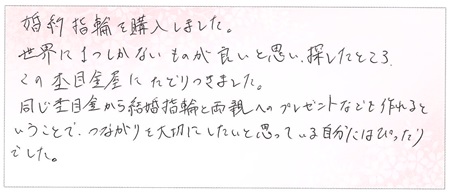 婚約指輪を購入しました。
世界に1つしかないものが良いと思い、探したところ
この杢目金屋にたどりつきました。
同じ杢目金から結婚指輪と両親へのプレゼントなども作れると
いうことで、つながりを大切にしたいと思っている自分にはぴったり
でした。